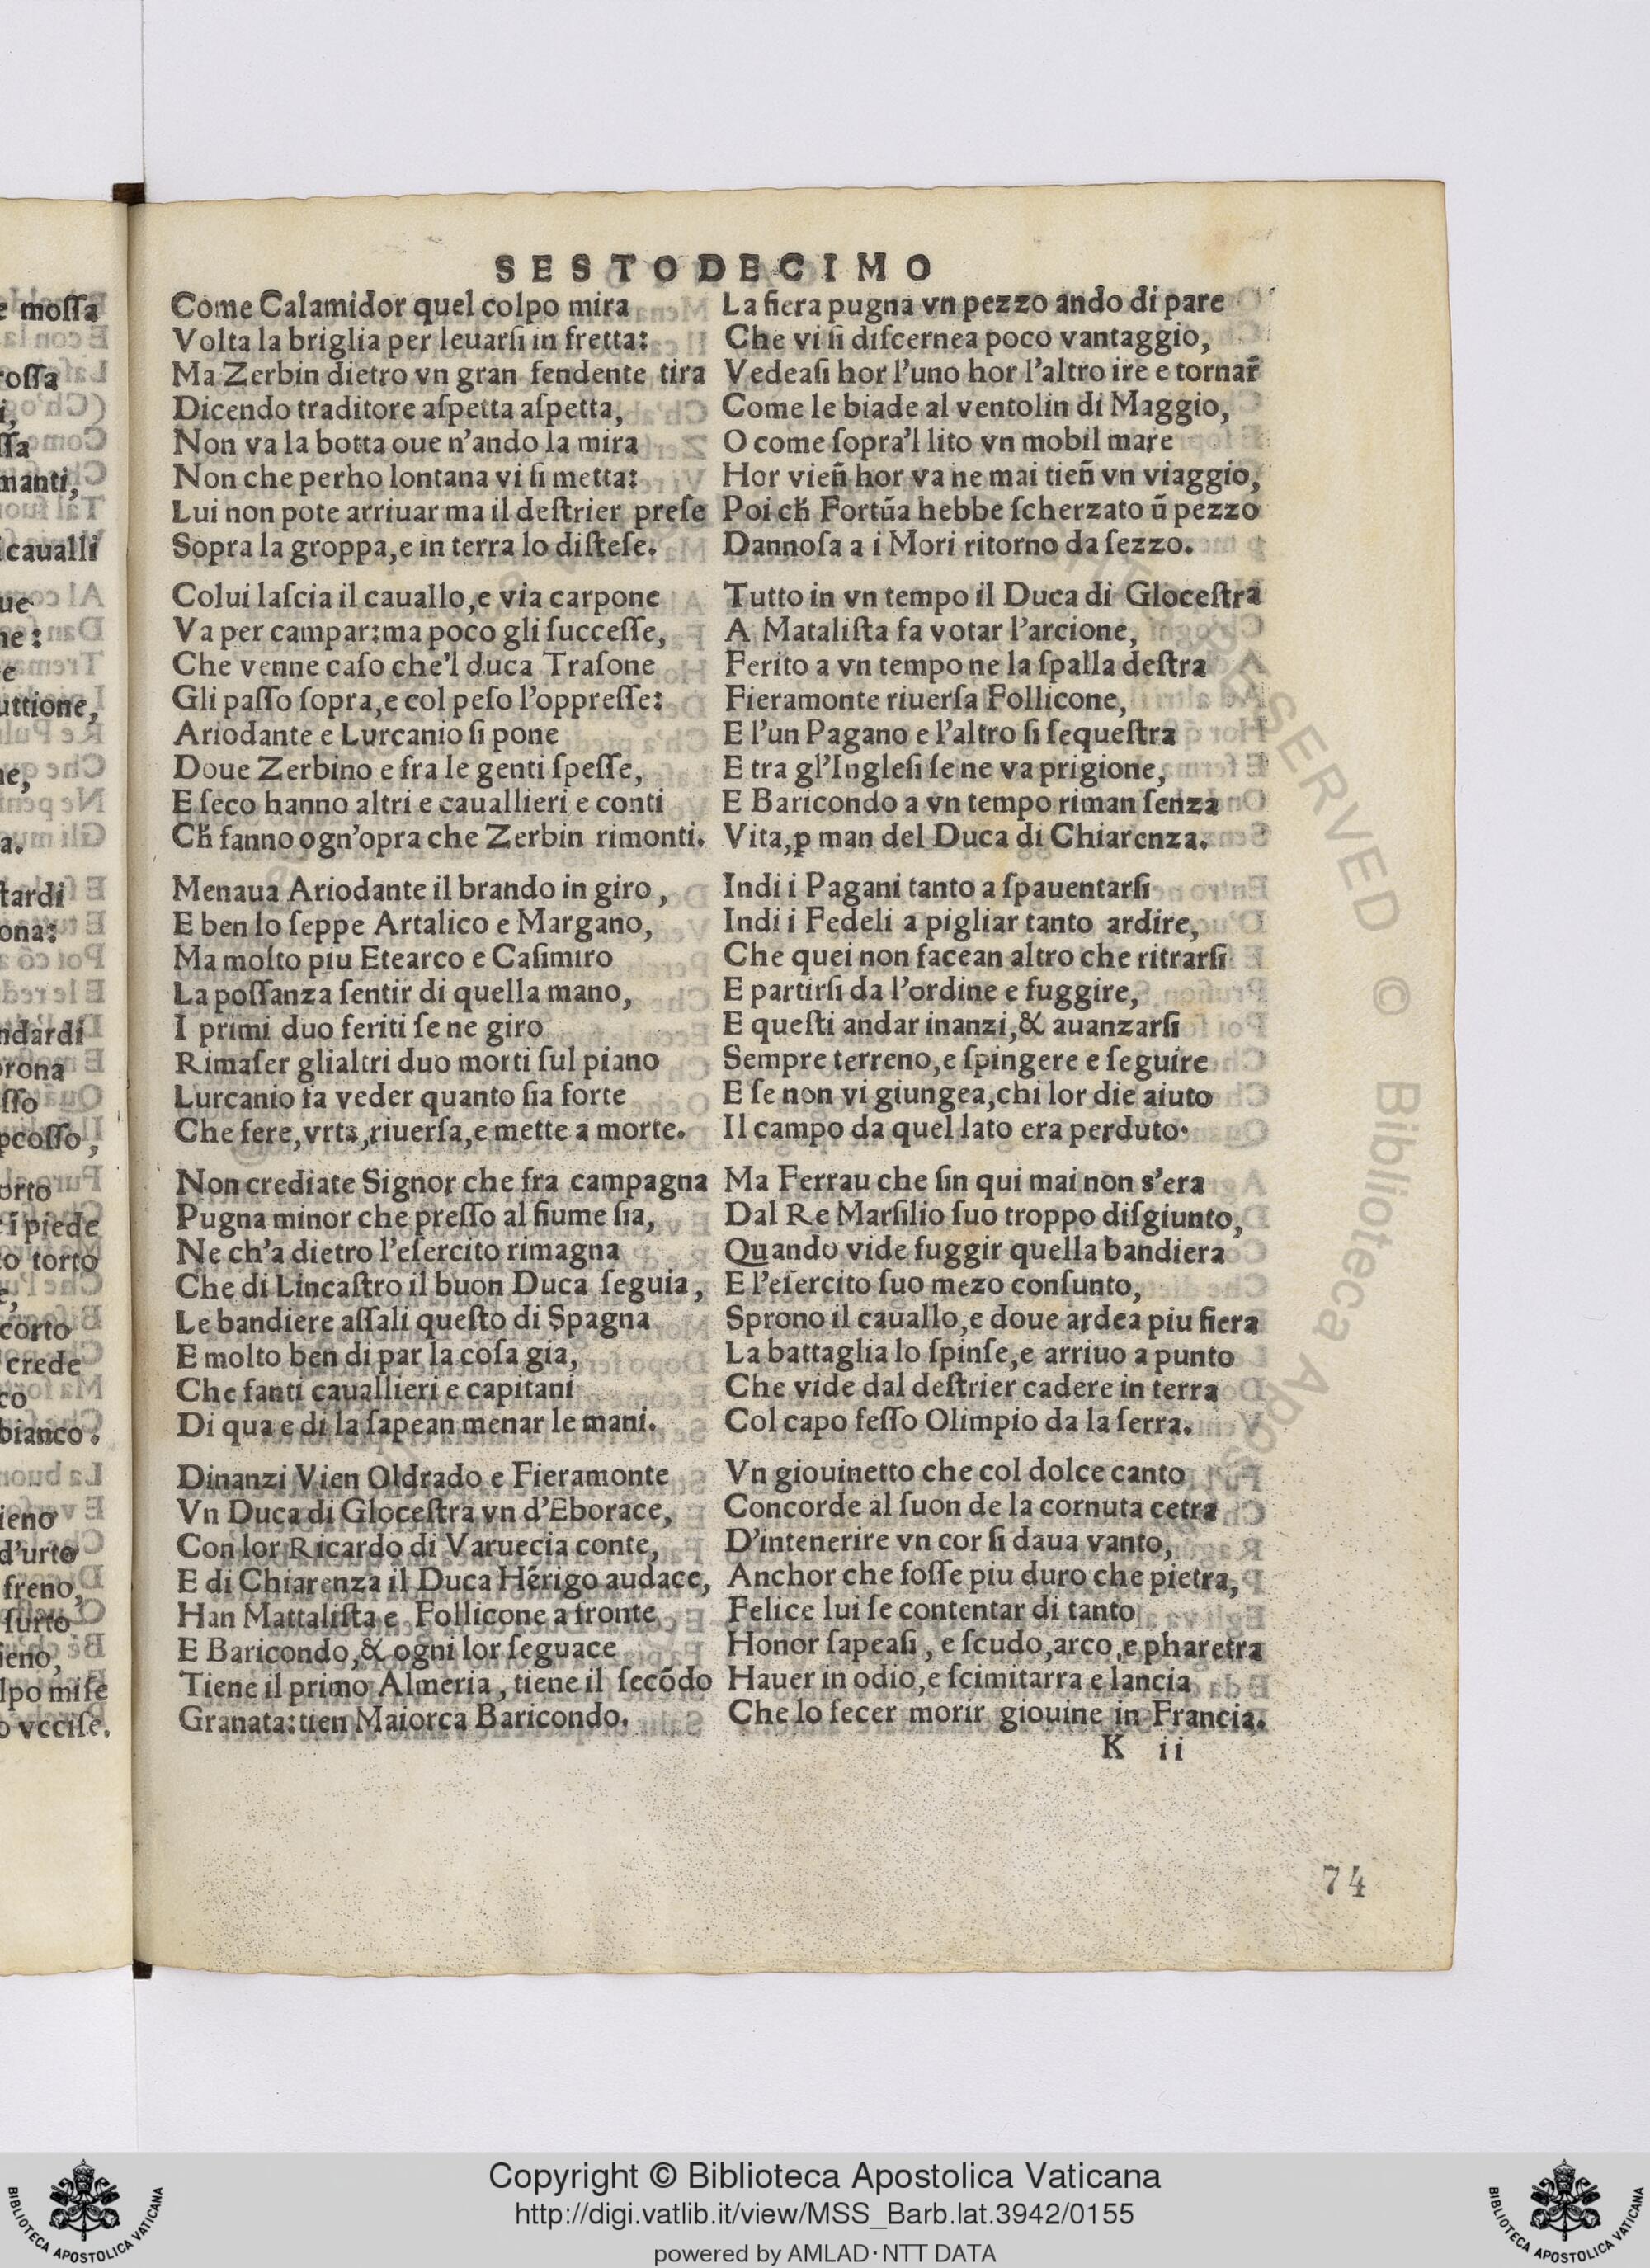 SESTODECIMO
Come Calamidor quel colpo mira
Volta la briglia per leuarſi in fretta:
Ma Zerbin dietro vn gran fendente tira
Dicendo traditore aſpetta aſpetta,
Non va la botta oue n'ando la mira
Non che perho lontana vi ſi metta:
Lui non pote arriuar ma il deſtrier preſe
Sopra la groppa,e in terra lo diſteſe.
Colui laſcia il cauallo,e via carpone
Va per campar:ma poco gli ſucceſſe,
Che venne caſo che'l duca Traſone
Gli paſſo ſopra,e col peſo l'oppreſſe:
Ariodante e Lurcanio ſi pone
Doue Zerbino e fra le genti ſpeſſe,
E ſeco hanno altri e cauallieri e conti
Cħ fanno ogn'opra che Zerbin rimonti.
Menaua Ariodante il brando in giro ,
E ben lo ſeppe Artalico e Margano,
Ma molto piu Etearco e Caſimiro
La poſſanza ſentir di quella mano,
I primi duo feriti ſe ne giro
Rimaſer glialtri duo morti ſul piano
Lurcanio fa veder quanto ſia forte
Che fere,vrta,riuerſa,e mette a morte.
Non crediate Signor che fra campagna
Pugna minor che preſſo al fiume ſia,
Ne ch'a dietro l'eſercito rimagna
Che di Lincaſtro il buon Duca ſeguia,
Le bandiere aſſali queſto di Spagna
E molto ben di par la coſa gia,
Che fanti cauallieri e capitani
Di qua e di la ſapean menar le mani.
Dinanzi Vien Oldrado e Fieramonte
Vn Duca di Gloceſtra vn d'Eborace,
Con lor Ricardo di Varuecia conte,
E di Chiarenza il Duca Hērigo audace,
Han Mattaliſta e Follicone a fronte
E Baricondo,& ogni lor ſeguace
Tiene il primo Almeria, tiene il ſecōdo
Granata:tien Maiorca Baricondo.
La fiera pugna vn pezzo ando di pare
Che vi ſi diſcernea poco vantaggio,
Vedeaſi hor l'uno hor l'altro ire e tornar̃
Come le biade al ventolin di Maggio,
O come ſopra'l lito vn mobil mare
Hor vieñ hor va ne mai tieñ vn viaggio,
Poi cħ Fortũa hebbe ſcherzato ũ pezzo
Dannoſa a i Mori ritorno da ſezzo.
Tutto in vn tempo il Duca di Gloceſtra
A Mataliſta fa votar l'arcione,
Ferito a vn tempo ne la ſpalla deſtra
Fieramonte riuerſa Follicone,
E l'un Pagano e l'altro ſi ſequeſtra
E tra gl'Ingleſi ſe ne va prigione,
E Baricondo a vn tempo riman ſenza
Vita,ꝑ man del Duca di Chiarenza.
Indi i Pagani tanto a ſpauentarſi
Indi i Fedeli a pigliar tanto ardire,
Che quei non facean altro che ritrarſi
E partirſi da l'ordine e fuggire,
E queſti andar inanzi,& auanzarſi
Sempre terreno,e ſpingere e ſeguire
E ſe non vi giungea,chi lor die aiuto
Il campo da quel lato era perduto.
Ma Ferrau che ſin qui mai non s'era
Dal Re Marſilio ſuo troppo diſgiunto,
Quando vide fuggir quella bandiera
E l'eſercito ſuo mezo conſunto,
Sprono il cauallo,e doue ardea piu fiera
La battaglia lo ſpinſe,e arriuo a punto
Che vide dal deſtrier cadere in terra
Col capo feſſo Olimpio da la ſerra.
Vn giouinetto che col dolce canto
Concorde al ſuon de la cornuta cetra
D'intenerire vn cor ſi daua vanto,
Anchor che foſſe piu duro che pietra,
Felice lui ſe contentar di tanto
Honor ſapeaſi, e ſcudo,arco,e pharetra
Hauer in odio,e ſcimitarra e lancia
Che lo fecer morir giouine in Francia.
K ii
74
Copyright © Biblioteca Apostolica Vaticana
http://digi.vatlib.it/view/MSS_Barb.lat.3942/0155
powered by AMLAD·NTT DATA
BIBLIOTECA APOSTOLICA VATICANA
BIBLIOTECA APOSTOLICA VATICANA